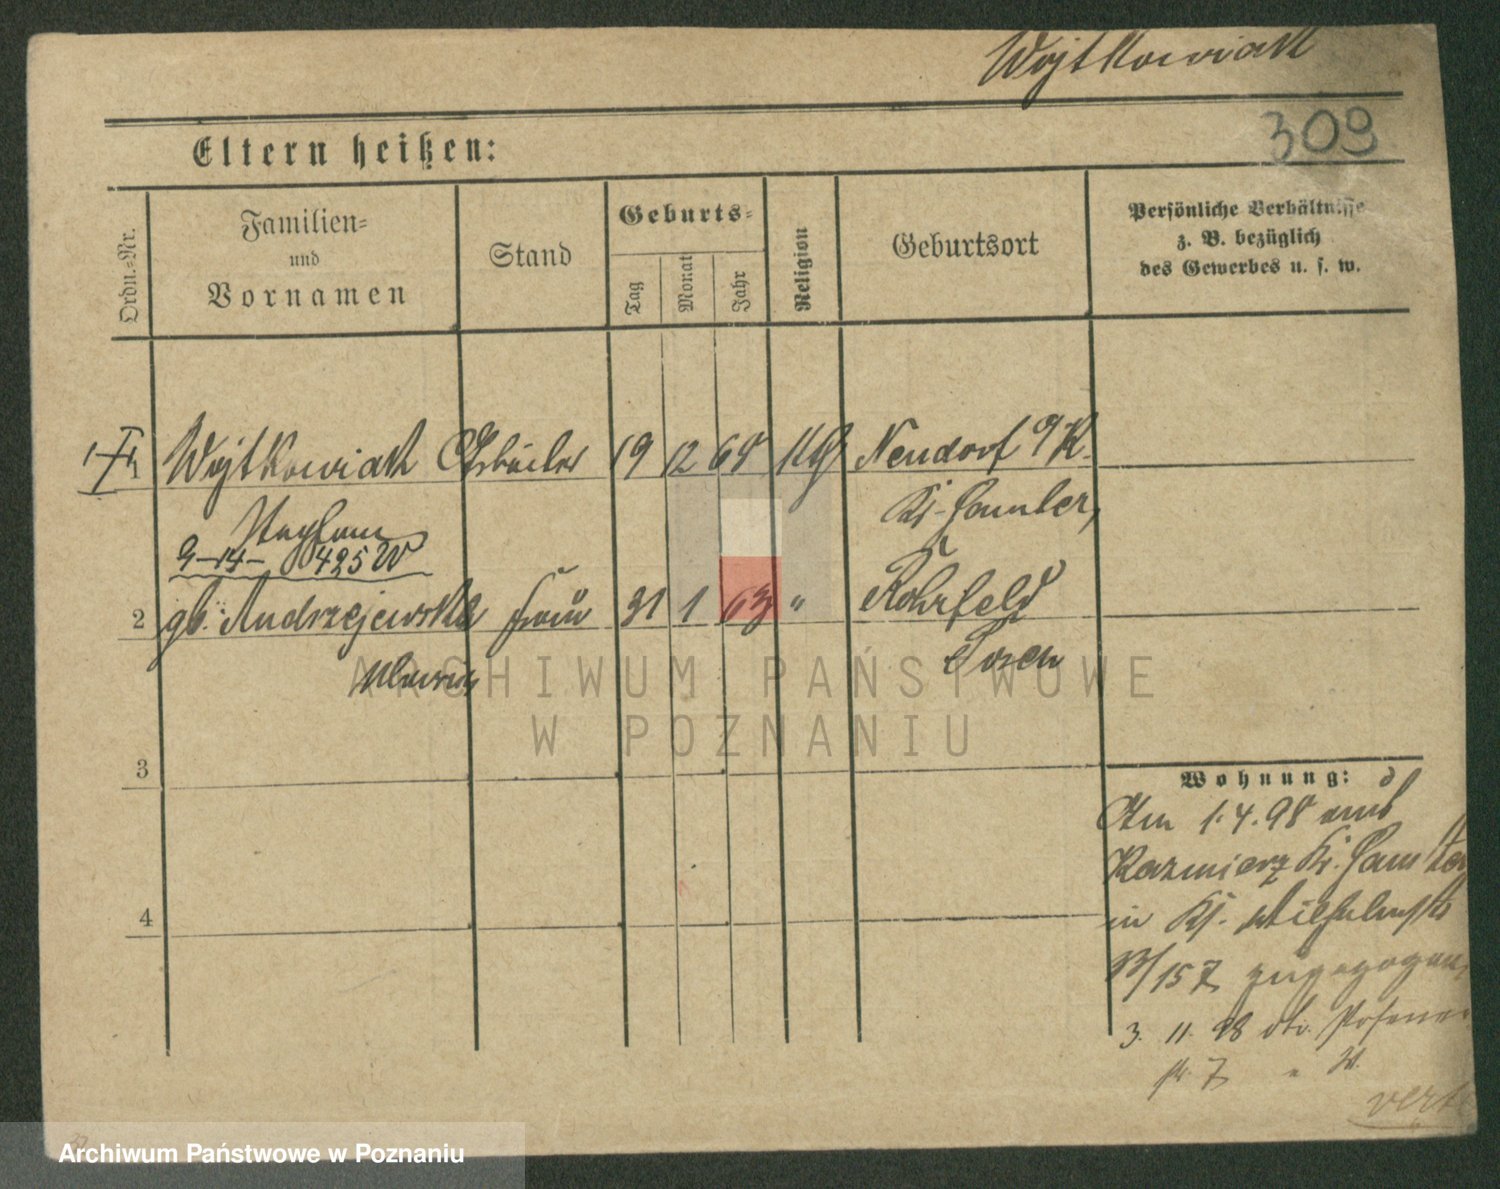 Wojtkowiak
309
Eltern heißen:
Ordn.-Nr.
Familien-
und
Vornamen
Stand
Geburts-
Tag
Monat
Jahr
Religion
Geburtsort
Persönliche Verhältnisse
z. B. bezüglich
des Gewerbes u. s. w.
1 Wojtkowiak Arbeiter 19 12 68 Neudorf
9-14- 425 W
2 gb. Andrzejewska Frau 31 1 63 " Rohrfeld
Posen
3
Wohnung:
Am 1.4.98 aus
Kazmierz Kr. Samter
in
157 zugezogen
3. 11. 98 Posener
7 " W.
4
vert
ARCHIWUM PAŃSTWOWE
W POZNANIU
Archiwum Państwowe w Poznaniu